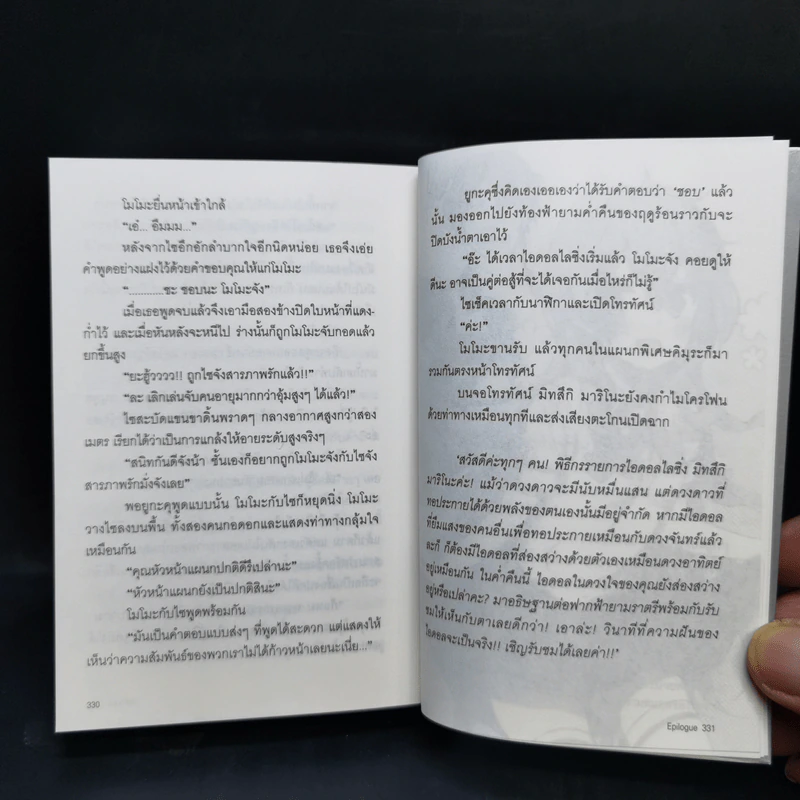 โมโมะยื่นหน้าเข้าใกล้
“เอ๋... อืมมม...”
หลังจากไซอึกอักลำบากใจอีกนิดหน่อย เธอจึงเอ่ย
คำพูดอย่างแฝงไว้ด้วยคำขอบคุณให้แก่โมโมะ
“.............ชะ ชอบนะ โมโมะจัง”
เมื่อเธอพูดจบแล้วจึงเอามือสองข้างปิดใบหน้าที่แดง-
ก่ำไว้ และเมื่อหันหลังจะหนีไป ร่างนั้นก็ถูกโมโมะจับกอดแล้ว
ยกขึ้นสูง
“ยะฮู้วววว!! ถูกไซจังสารภาพรักแล้ว!!”
“ละ เลิกเล่นจับคนอายุมากกว่าอุ้มสูงๆ ได้แล้ว!”
ไซสะบัดแขนขาดิ้นพราดๆ กลางอากาศสูงกว่าสอง
เมตร เรียกได้ว่าเป็นการแกล้งให้อายระดับสูงจริงๆ
“สนิทกันดีจังน้า ชั้นเองก็อยากถูกโมโมะจังกับไซจัง
สารภาพรักมั่งจังเลย”
พอยูกะคุพูดแบบนั้น โมโมะกับไซก็หยุดนิ่ง โมโมะ
วางไซลงบนพื้น ทั้งสองคนกอดอกและแสดงท่าทางกลุ้มใจ
เหมือนกัน
“คุณหัวหน้าแผนกปกติดีรึเปล่านะ”
“หัวหน้าแผนกยังเป็นปกติสินะ”
โมโมะกับไซพูดพร้อมกัน
“มันเป็นคำตอบแบบส่งๆ ที่พูดได้สะดวก แต่แสดงให้
เห็นว่าความสัมพันธ์ของพวกเราไม่ได้ก้าวหน้าเลยนะเนี่ย...”
330
ยูกะคุซึ่งคิดเองเออเองว่าได้รับคำตอบว่า ‘ชอบ’ แล้ว
นั้น มองออกไปยังท้องฟ้ายามค่ำคืนของฤดูร้อนราวกับจะ
ปิดบังน้ำตาเอาไว้
“อ๊ะ ได้เวลาไอดอลไลซิ่งเริ่มแล้ว โมโมะจัง คอยดูให้
ดีนะ อาจเป็นคู่ต่อสู้ที่จะได้เจอกันเมื่อไหร่ก็ไม่รู้”
ไซเช็คเวลากับนาฬิกาและเปิดโทรทัศน์
“ค่ะ!”
โมโมะขานรับ แล้วทุกคนในแผนกพิเศษคิมุระก็มา
รวมกันตรงหน้าโทรทัศน์
บนจอโทรทัศน์ มิทสึกิ มาริโนะยังคงกำไมโครโฟน
ด้วยท่าทางเหมือนทุกทีและส่งเสียงตะโกนเปิดฉาก
‘สวัสดีค่ะทุกๆ คน! พิธีกรรายการไอดอลไลซิ่ง มิทสึกิ
มาริโนะค่ะ! แม้ว่าดวงดาวจะมีนับหมื่นแสน แต่ดวงดาวที่
ทอประกายได้ด้วยพลังของตนเองนั้นมีอยู่จำกัด หากมีไอดอล
ที่ยืมแสงของคนอื่นเพื่อทอประกายเหมือนกับดวงจันทร์แล้ว
ละก็ ก็ต้องมีไอดอลที่ส่องสว่างด้วยตัวเองเหมือนดวงอาทิตย์
อยู่เหมือนกัน ในค่ำคืนนี้ ไอดอลในดวงใจของคุณยังส่องสว่าง
อยู่หรือเปล่าคะ? มาอธิษฐานต่อฟากฟ้ายามราตรีพร้อมกับรับ
ชมให้เห็นกับตาเลยดีกว่า! เอาล่ะ! วินาทีที่ความฝันของ
ไอดอลจะเป็นจริง!! เชิญรับชมได้เลยค่า!!’
Epilogue 331